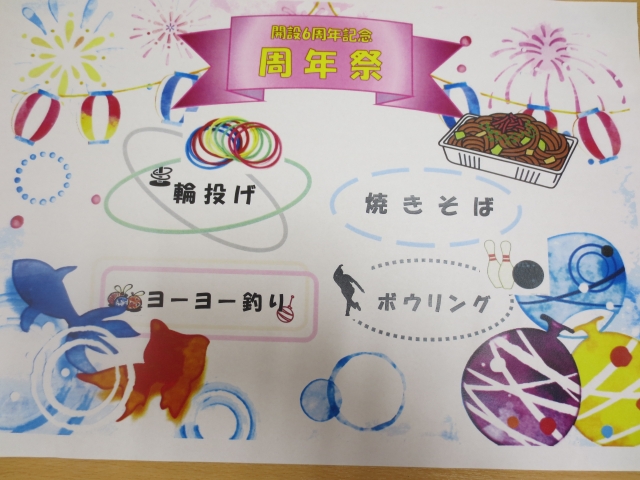 開設6周年記念
周年祭
輪投げ
焼きそば
ヨーヨー釣り
ボウリング